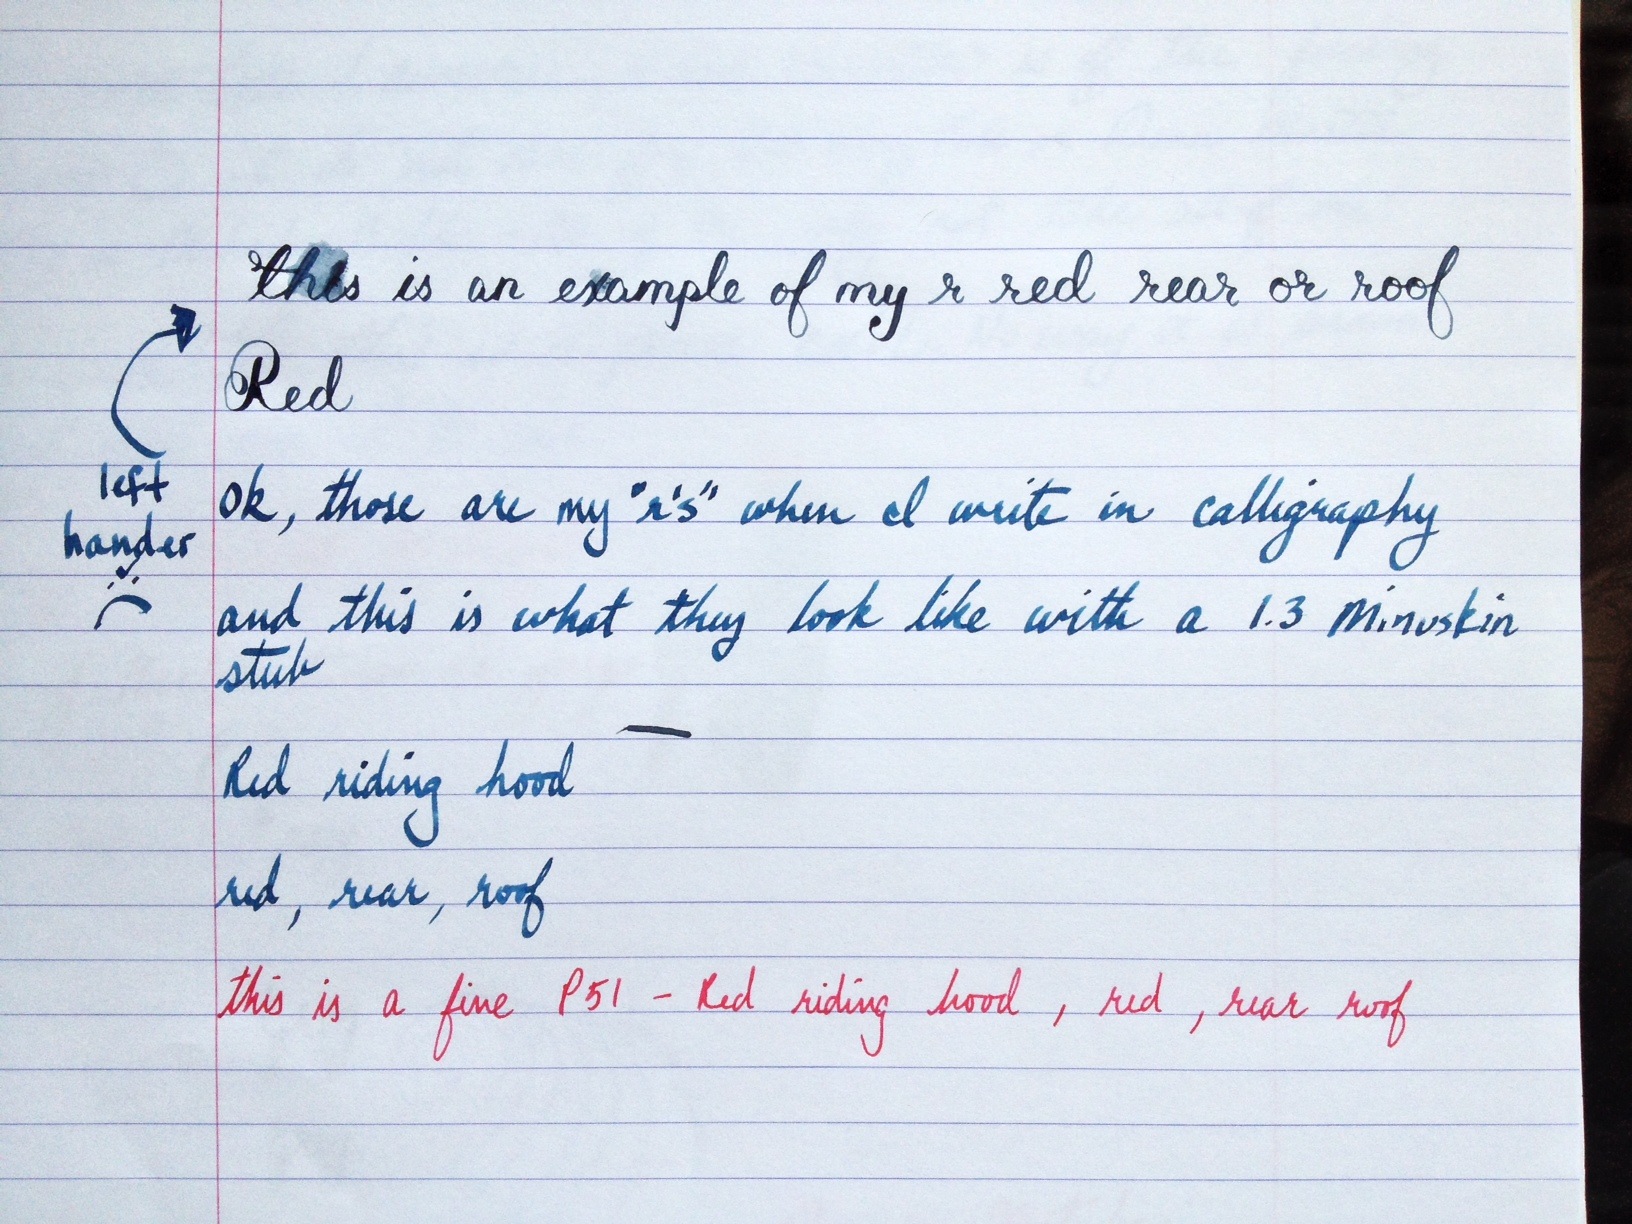 this is an example of my r red rear or roof
Red
left
hander
ok, those are my "r's" when I write in calligraphy
and this is what they look like with a 1.3 Minuskin
stub
Red riding hood
red, rear, roof
this is a fine P51 - Red riding hood, red, rear roof